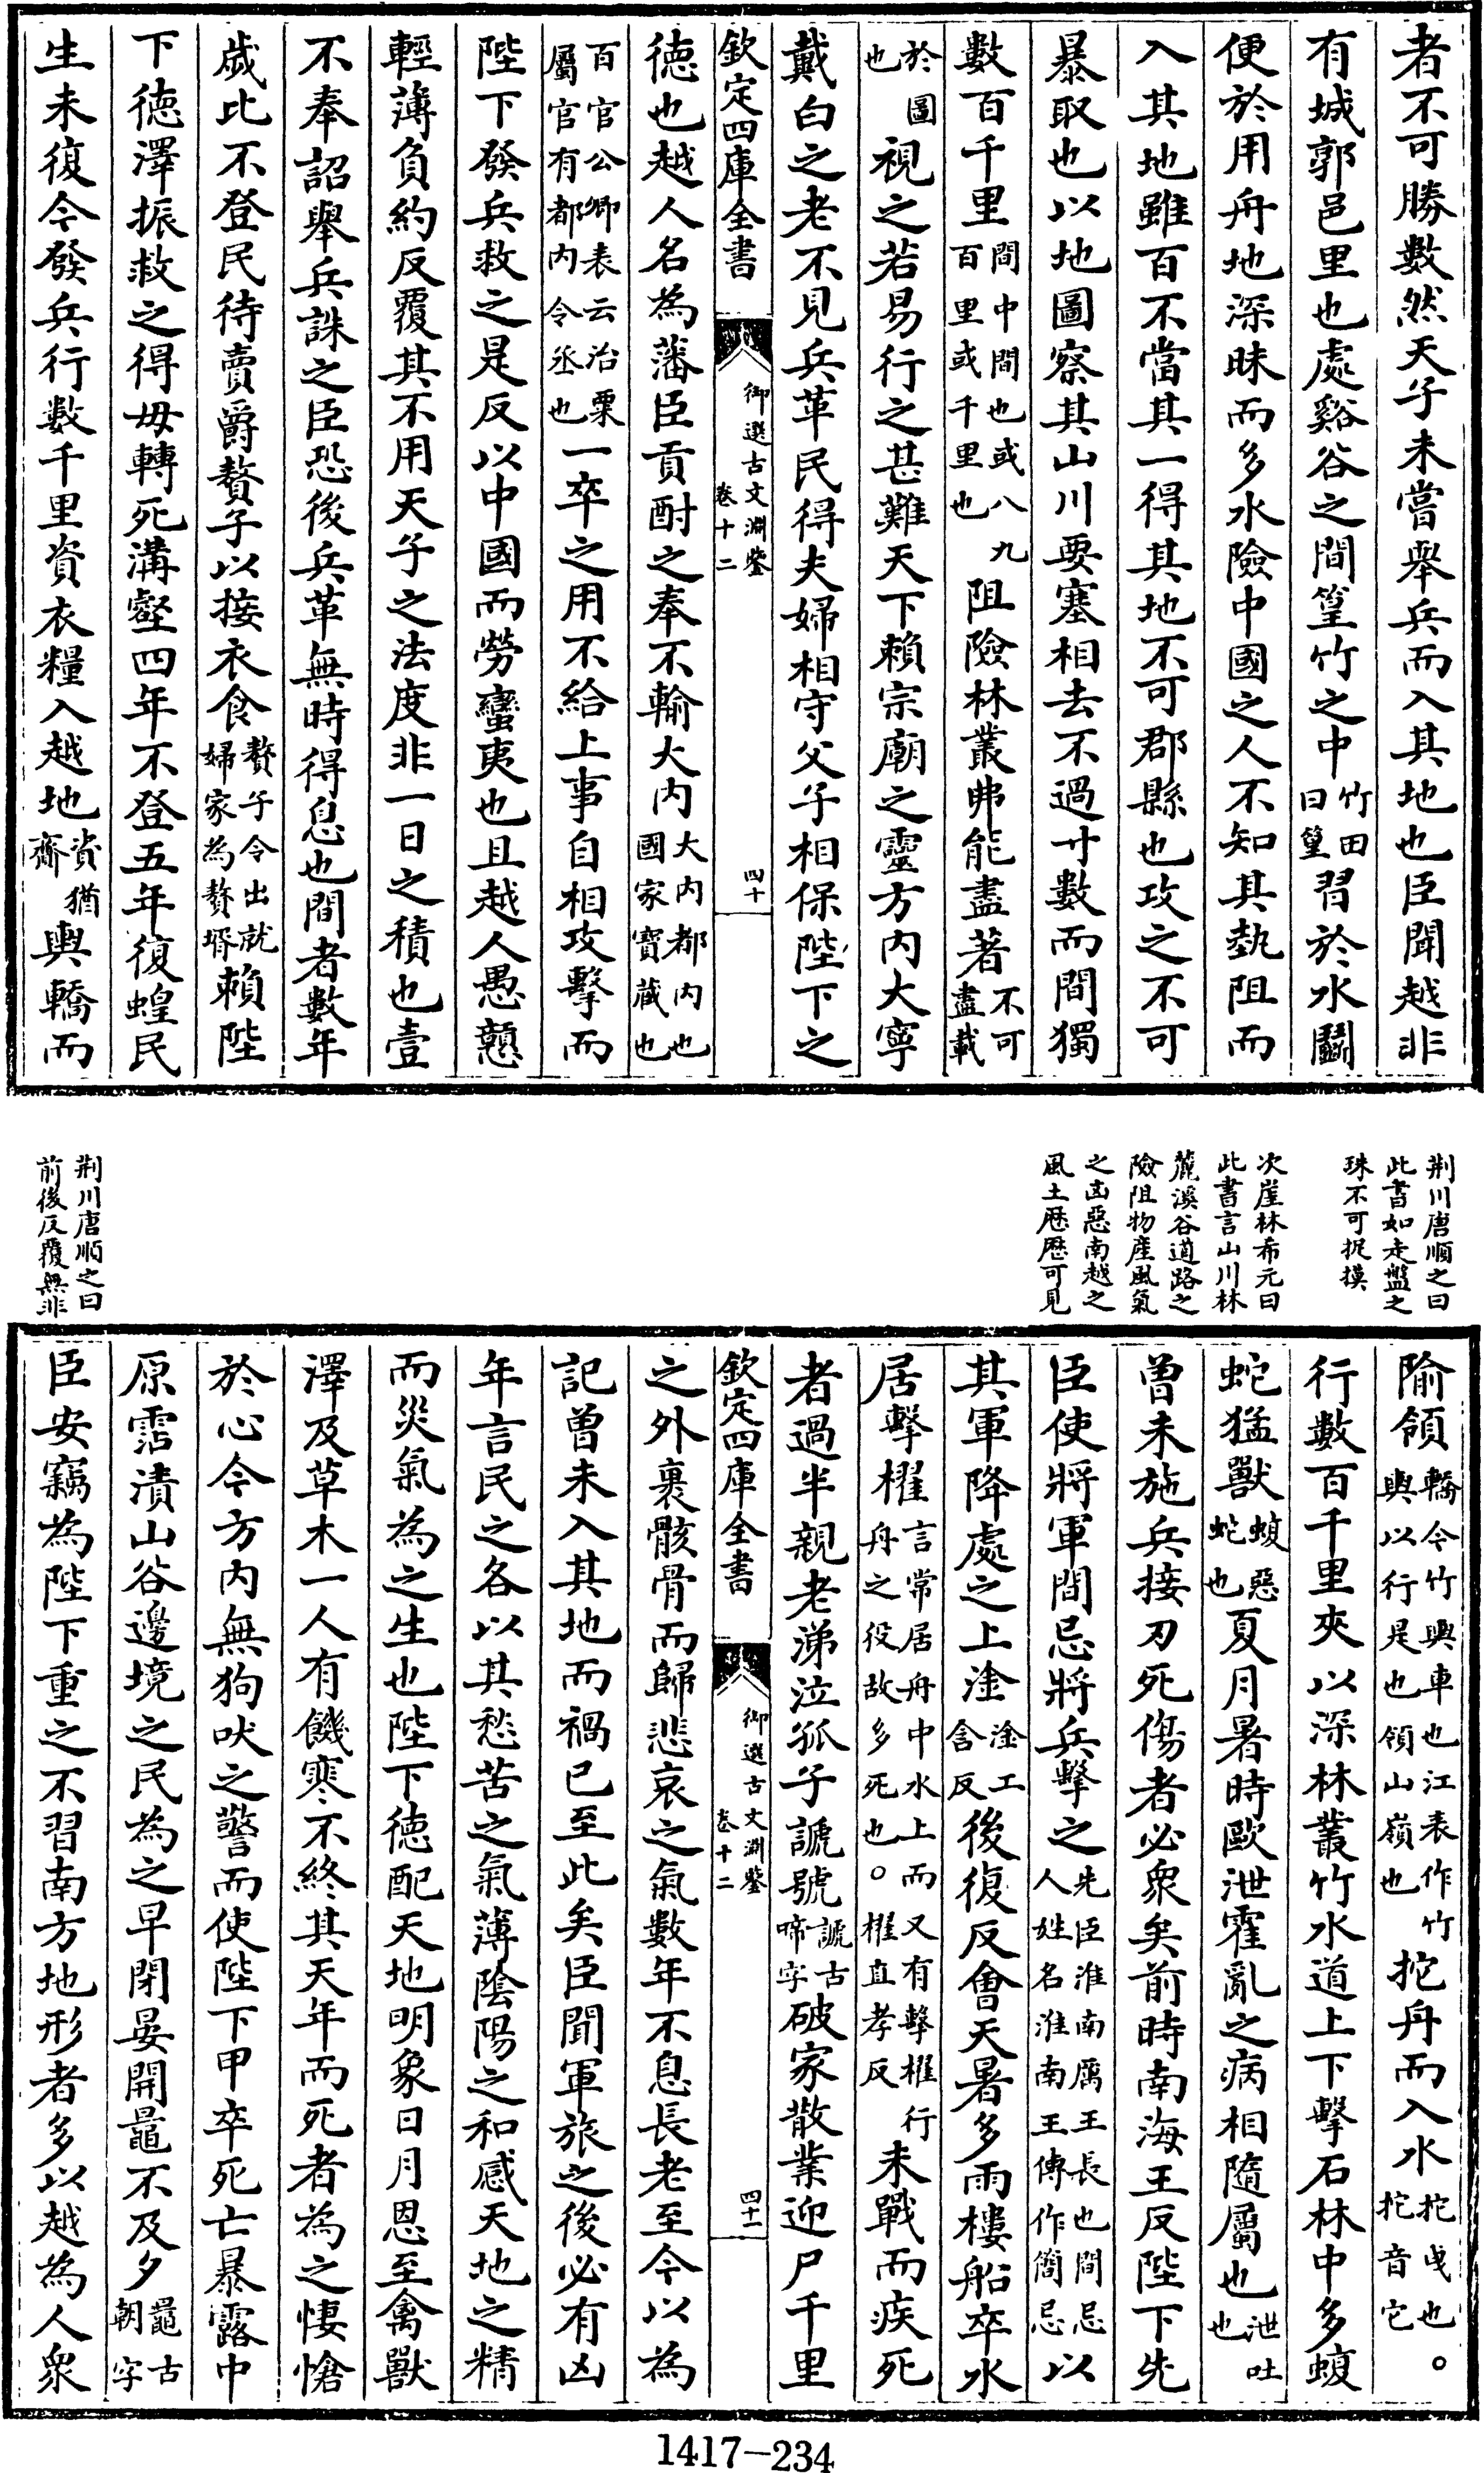 者不可勝數然天子未嘗舉兵而入其地也臣聞越非
有城郭邑里也處谿谷之間篁竹之中竹田曰篁習於水鬭
便於用舟地深昧而多水險中國之人不知其埶阻而
入其地雖百不當其一得其地不可郡縣也攻之不可
暴取也以地圖察其山川要塞相去不過寸數而間獨
數百千里間中間也或八九百里或千里也阻險林叢弗能盡著不可盡載
於圖也視之若易行之甚難天下賴宗廟之靈方内大寧
戴白之老不見兵革民得夫婦相守父子相保陛下之
欽定四庫全書 御選古文淵鑒卷十二 四十
徳也越人名為藩臣貢酎之奉不輸大内大内都内也國家寳藏也
百官公卿表云治粟屬官有都内令丞也一卒之用不給上事自相攻擊而
陛下發兵救之是反以中國而勞蠻夷也且越人愚戇
輕薄負約反覆其不用天子之法度非一日之積也壹
不奉詔舉兵誅之臣恐後兵革無時得息也間者數年
歲比不登民待賣爵贅子以接衣食贅子令出就婦家為贅壻賴陛
下徳澤振救之得毋轉死溝壑四年不登五年復蝗民
生未復今發兵行數千里資衣糧入越地資猶齎輿轎而
荆川唐順之曰
此書如走盤之
珠不可捉摸
次崖林希元曰
此書言山川林
麓溪谷道路之
險阻物産風氣
之凶惡南越之
風土歴歴可見
荆川唐順之曰
前後反覆無非
隃領轎今竹輿車也江表作竹輿以行是也領山嶺也拕舟而入水拕曵也。拕音它
行數百千里夾以深林叢竹水道上下擊石林中多蝮
蛇猛獸蝮惡蛇也夏月暑時歐泄霍亂之病相隨屬也泄吐也
曽未施兵接刃死傷者必衆矣前時南海王反陛下先
臣使將軍間忌將兵擊之先臣淮南厲王長也間忌人姓名淮南王傳作簡忌以
其軍降處之上淦淦工含反後復反會天暑多雨樓船卒水
居擊櫂言常居舟中水上而又有擊櫂行舟之役故多死也。櫂直孝反未戰而疾死
者過半親老涕泣孤子謕號謕古啼字破家散業迎尸千里
欽定四庫全書 御選古文淵鑒卷十二 四十一
之外裹骸骨而歸悲哀之氣數年不息長老至今以為
記曽未入其地而禍已至此矣臣聞軍旅之後必有凶
年言民之各以其愁苦之氣薄陰陽之和感天地之精
而災氣為之生也陛下徳配天地明象日月恩至禽獸
澤及草木一人有饑寒不終其天年而死者為之悽愴
於心今方内無狗吠之警而使陛下甲卒死亡暴露中
原霑漬山谷邊境之民為之早閉晏開鼂不及夕鼂古朝字
臣安竊為陛下重之不習南方地形者多以越為人衆
1417-234